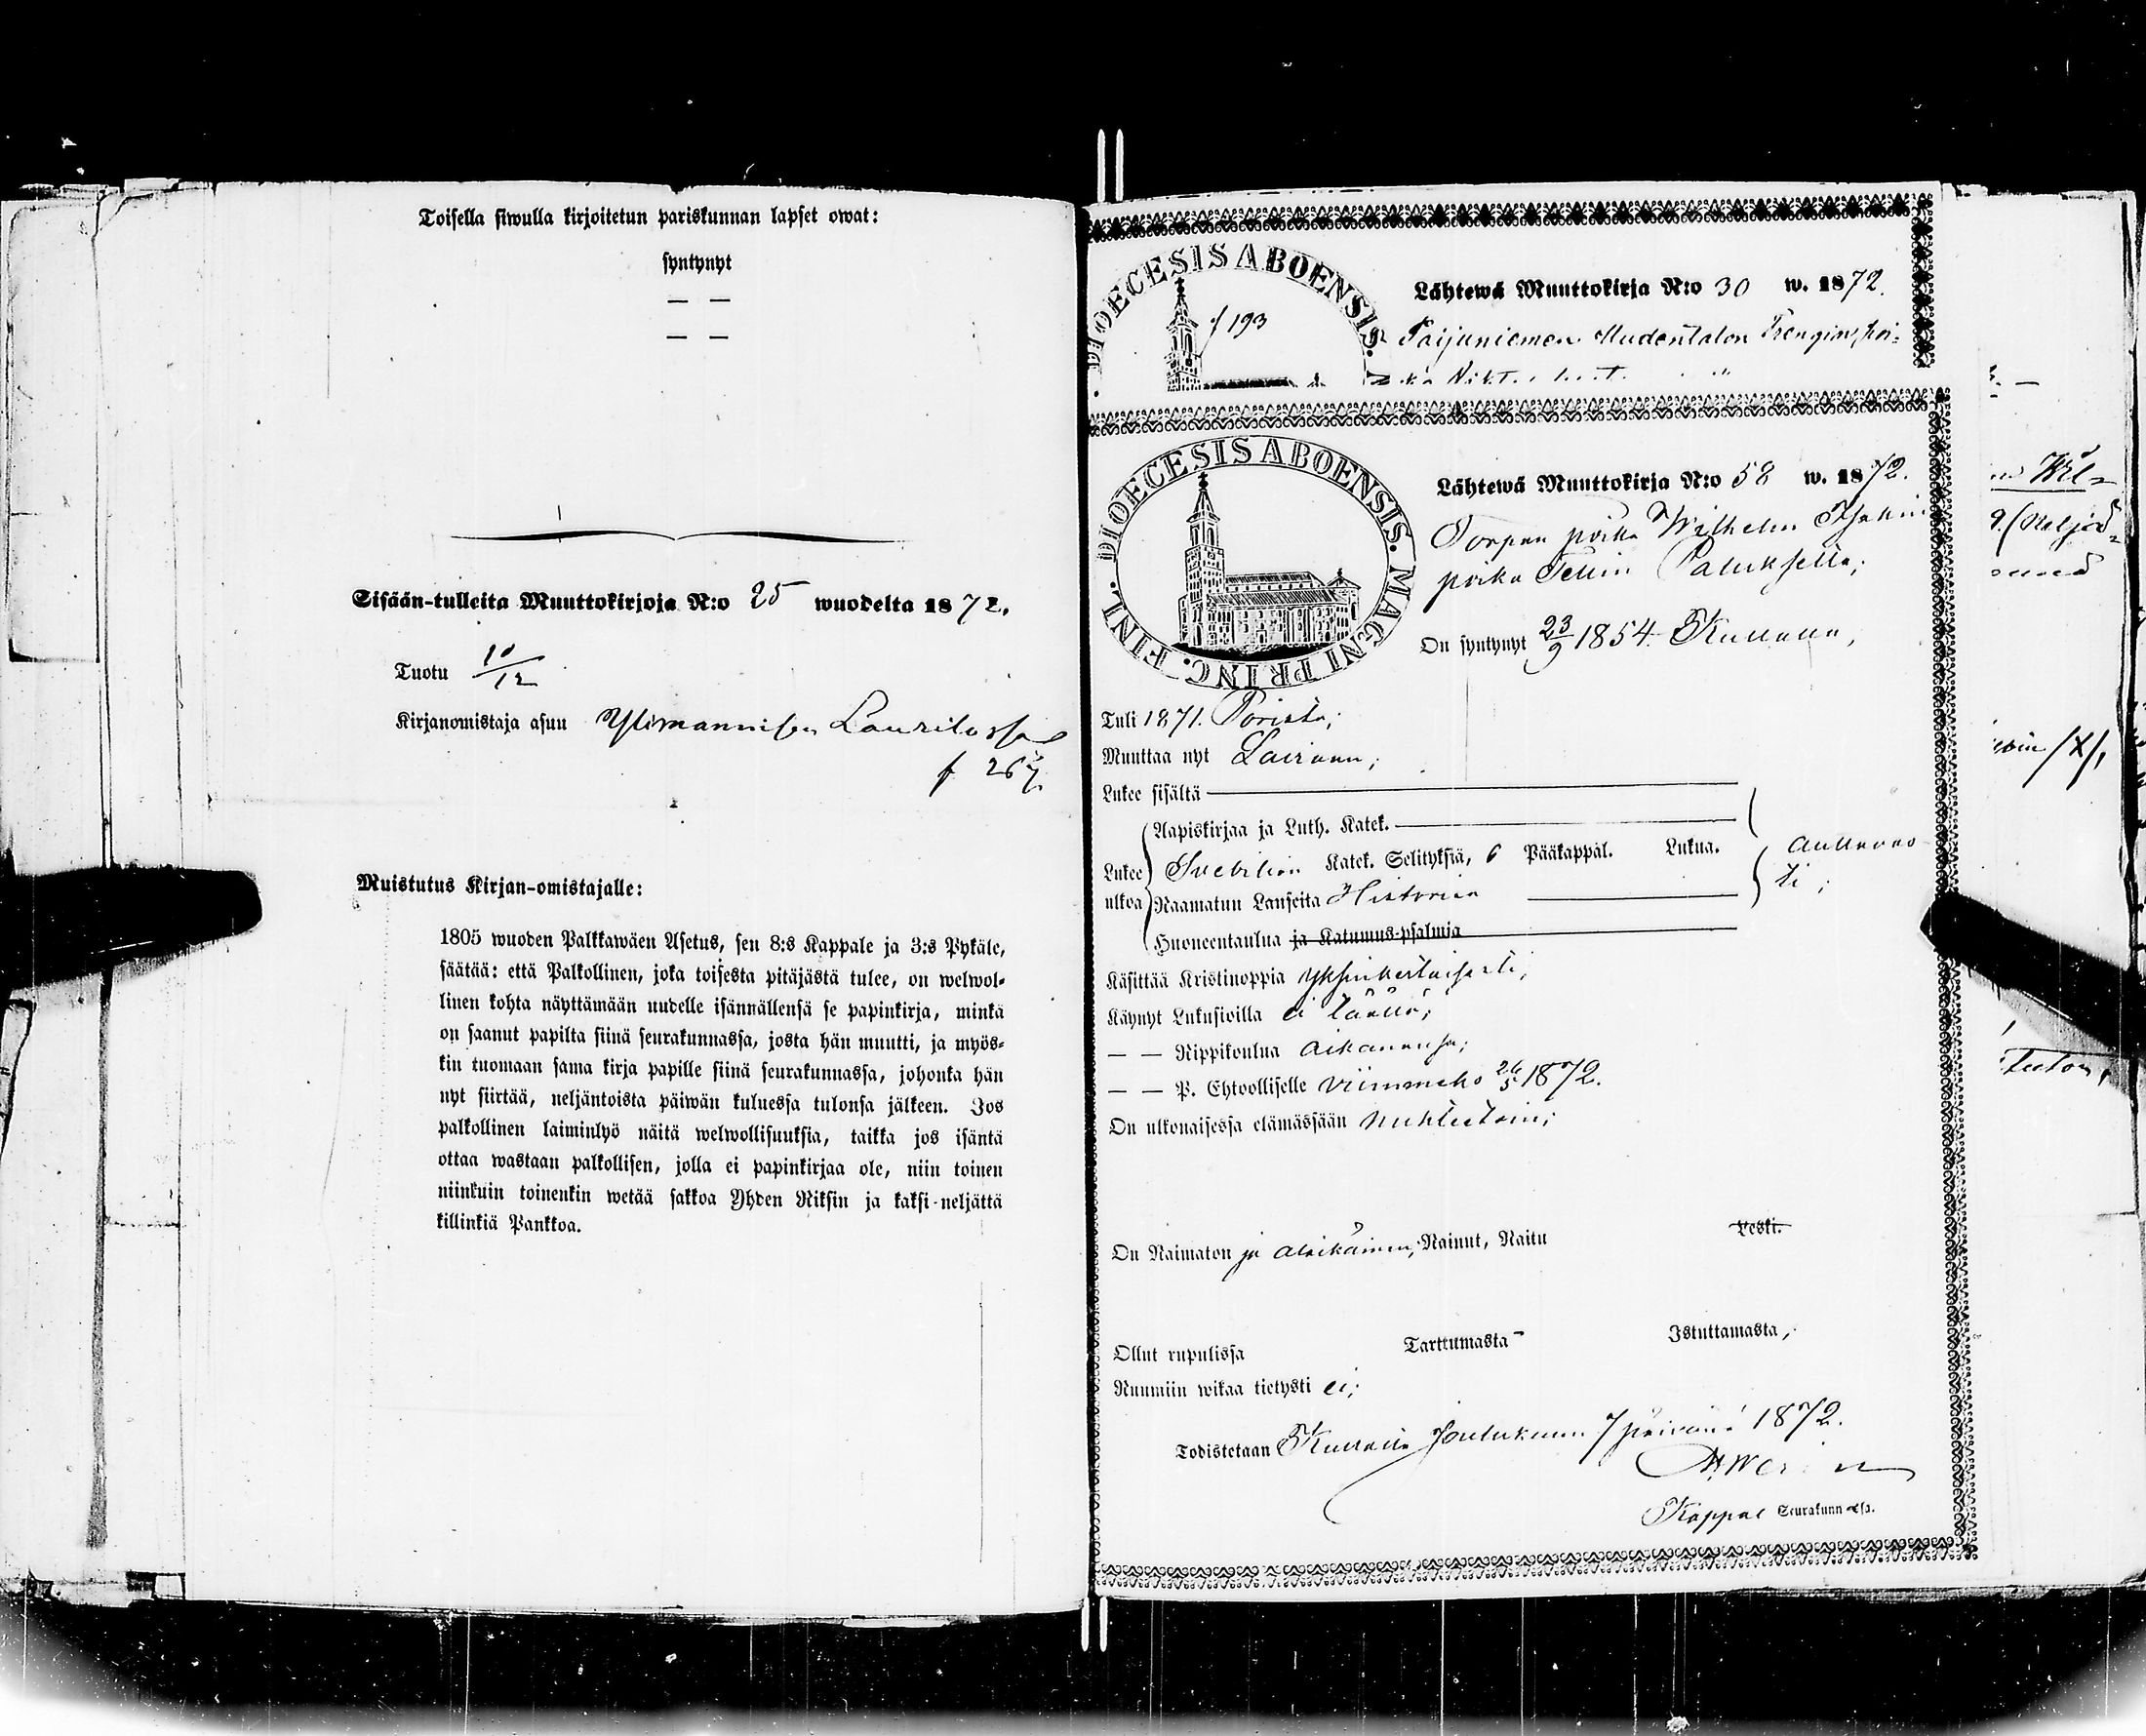 Toisella siwulla kirjoitetun pariskunnan lapset owat:
syntynyt
— —
— —
Sisään-tulleita Muuttokirjoja N:o 25 wuodelta 1872.
Tuotu 10/12
Kirjanomistaja asuu Ylimannisen Laurilassa
f 267.
Muistutus Kirjan-omistajalle:
1805 wuoden Palkkawäen Asetus, sen 8:s Kappale ja 3:s Pykäle,
säätää: että Palkollinen, joka toisesta pitäjästä tulee, on welwol-
linen kohta näyttämään uudelle isännällensä se papinkirja, minkä
on saanut papilta siinä seurakunnassa, josta hän muutti, ja myös-
kin tuomaan sama kirja papille siinä seurakunnassa, johonka hän
nyt siirtää, neljäntoista päiwän kuluessa tulonsa jälkeen. Jos
palkollinen laiminlyö näitä welwollisuuksia, taikka jos isäntä
ottaa wastaan palkollisen, jolla ei papinkirjaa ole, niin toinen
niinkuin toinenkin wetää sakkoa Yhden Riksin ja kaksi-neljättä
killinkiä Pankkoa.
DIOECESIS ABOENSIS.
f 193
Lähtewä Muuttokirja N:o 30 w. 1872.
Paijuniemen Uudentalon Trengin, poi-
DIOECESIS ABOENSIS. MAGNI PRINC. FINL.
Lähtewä Muuttokirja N:o 58 w. 1872.
Torpan poika Wilhelm
poika Tellin Palukselta;
On syntynyt 23/9 1854 Kullaalla,
Tuli 1871. Porista;
Muuttaa nyt Laviaan;
Lukee sisältä
Aapiskirjaa ja Luth. Katek.
Lukee Svebilion Katek. Selityksiä, 6 Pääkappal. Lukua.
ulkoa Raamatun Lauseita Historian
Huoneentaulua ja Katumus-psalmia
Käsittää Kristinoppia yksinkertaisesti;
Käynyt Lukusioilla ei täällä;
— — Rippikoulua aikanansa;
— — P. Ehtoolliselle viimmeksi 26/5 1872.
On ulkonaisessa elämässään nuhteetoin;
On Naimaton ja alaikäinen; Nainut, Naitu Leski.
Ollut rupulissa Tarttumasta Istuttamasta,
Ruumiin wikaa tietysti ei;
Todistetaan Kullaalla Joulukuun 7 päivänä 1872.
Kappal Seurakunnassa.